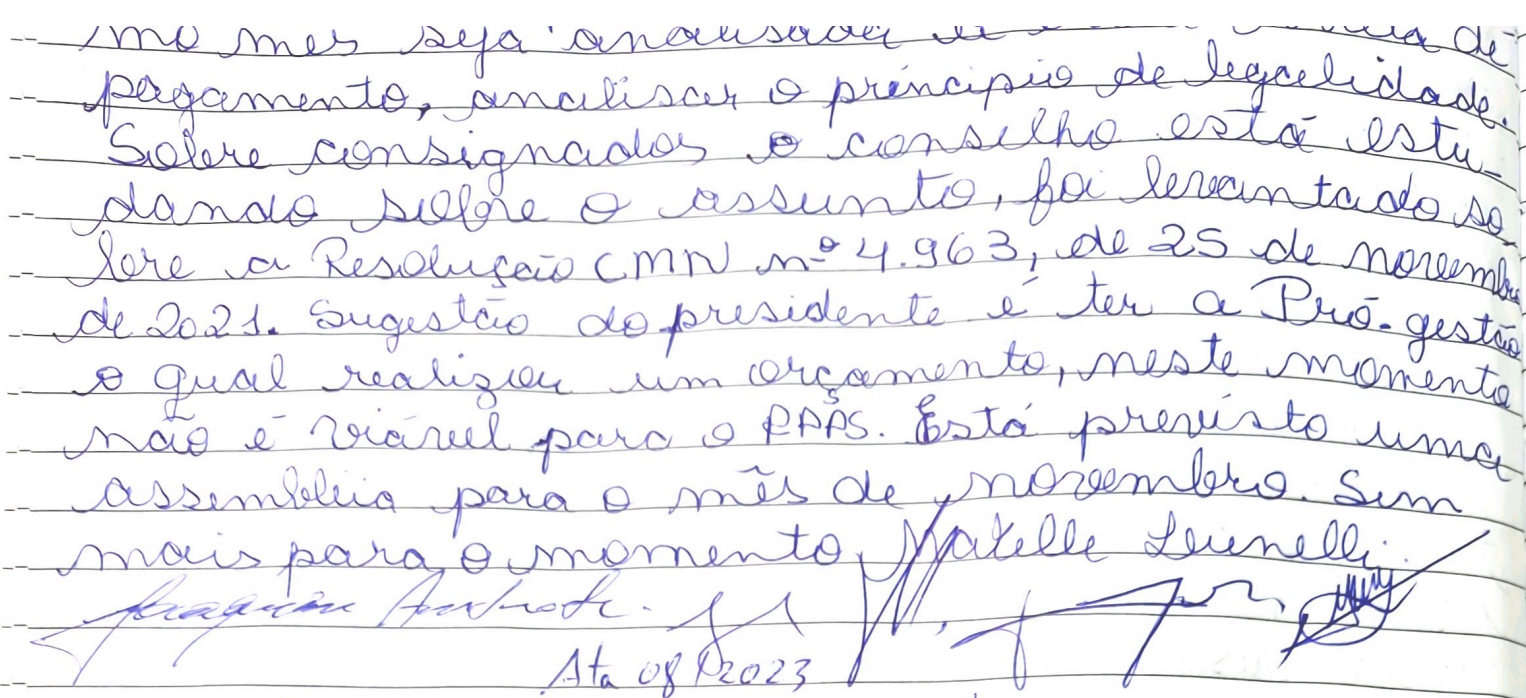 mo mes seja analisada de
pagamento, analisar o principio de legalidade.
Sobre consignados o conselho está estu-
dando sobre o assunto, foi levantado so-
bre a Resolução CMN nº 4.963, de 25 de novembro
de 2021. Sugestão do presidente é ter a Pró-gestão
o qual realizou um orçamento, neste momento
não é viável para o RPPS. Está previsto uma
assembleia para o mês de novembro. Sem
mais para o momento,
Joaquim Andrade.
Ata 08/2023